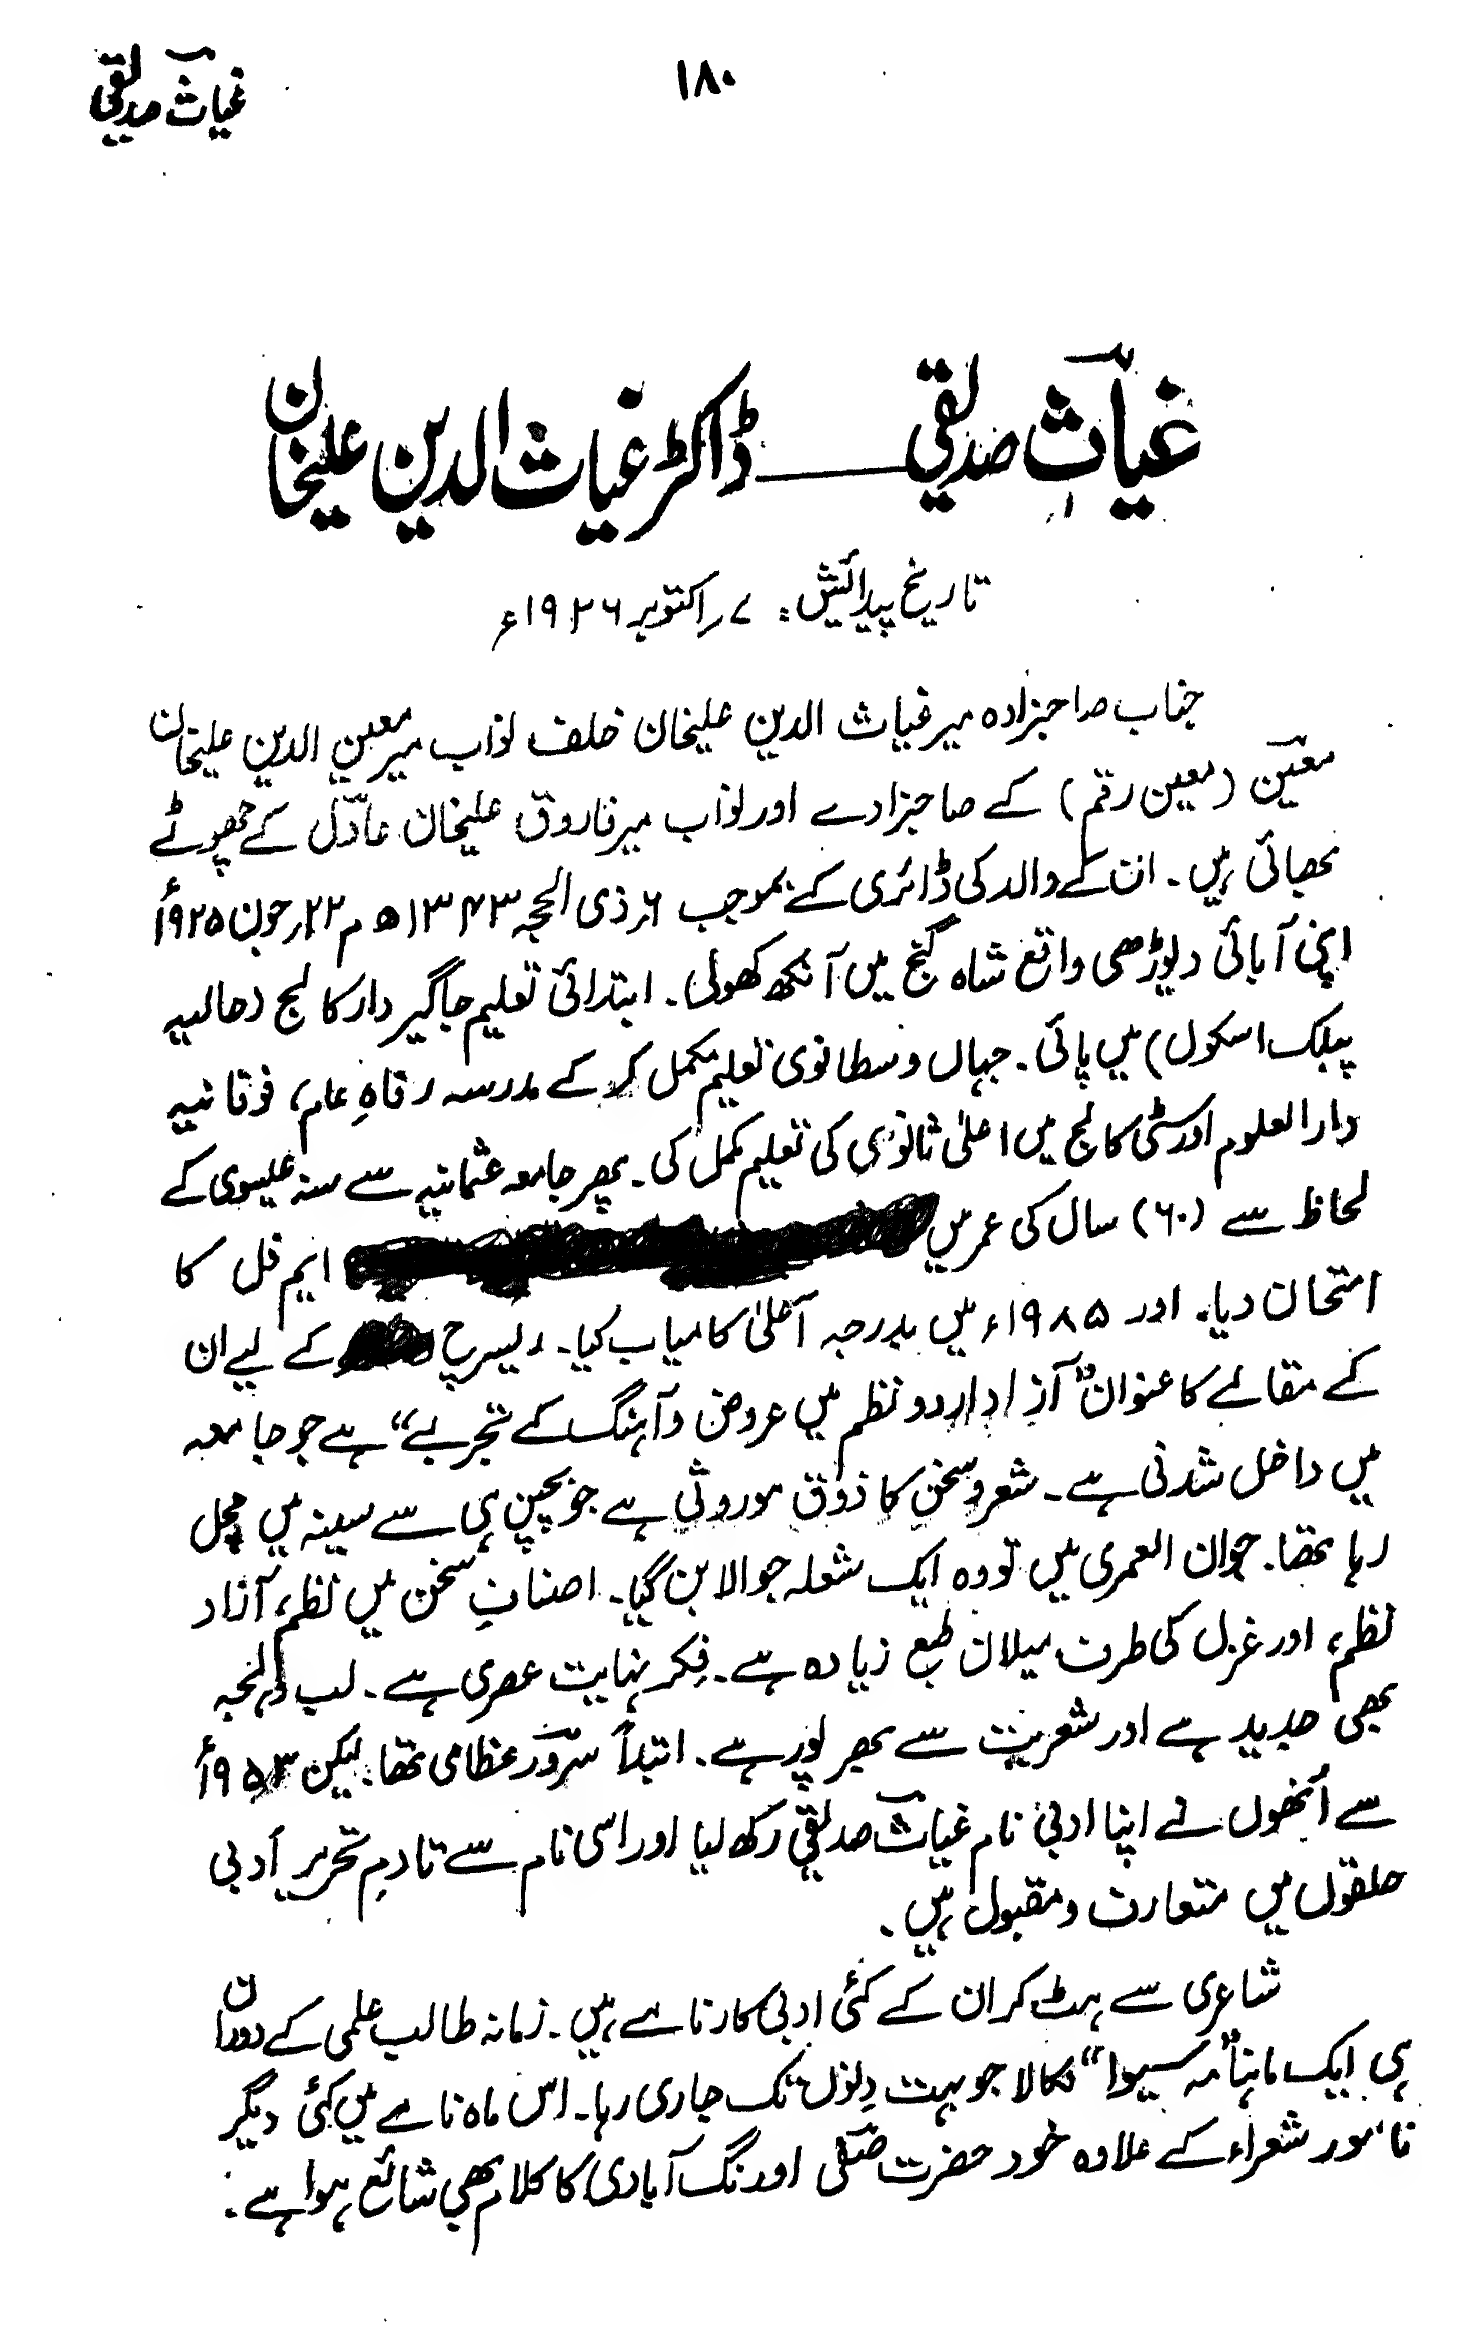 ۱۸۰
غیاثؔ صدیقی
غیاثؔ صدیقی ـــــ ڈاکٹر غیاث الدین علیخان
تاریخ پیدائش: ۷ راکتوبر ۱۹۲۶ء
جناب صاحبزادہ میر غیاث الدین علیخان خلف نواب میر معین الدین علیخان
معینؔ (معین رقم) کے صاحبزادے اور نواب میر فاروق علیخان عادلؔ کے چھوٹے
بھائی ہیں۔ ان کے والد کی ڈائری کے بموجب ۶ رذی الحجہ ۱۳۴۳ھ م ۲۲ رجون ۱۹۲۵ء
اپنی آبائی دیوڑھی واقع شاہ گنج میں آنکھ کھولی۔ ابتدائی تعلیم جاگیر دار کالج (حالیہ
پبلک اسکول) میں پائی۔ جہاں وسطانوی تعلیم مکمل کر کے مدرسہ رفاہِ عام، فوقانیہ
دارالعلوم اور سٹی کالج میں اعلیٰ ثانوی کی تعلیم مکمل کی۔ پھر جامعہ عثمانیہ سے سنہ عیسوی کے
لحاظ سے (۶۰) سال کی عمر میں ایم فل کا
امتحان دیا۔ اور ۱۹۸۵ء میں بدرجہ اعلیٰ کامیاب کیا۔ ریسرچ کے لیے ان
کے مقالے کا عنوان "آزاد اردو نظم میں عروض و آہنگ کے تجربے" ہے جو جامعہ
میں داخل شدنی ہے۔ شعر و سخن کا ذوق موروثی ہے جو بچپن ہی سے سینہ میں مچل
رہا تھا۔ جوان العمری میں تو وہ ایک شعلہ جوالا بن گیا۔ اصنافِ سخن میں نظم، آزاد
نظم، اور غزل کی طرف میلان طبع زیادہ ہے۔ فکر نہایت عصری ہے۔ لب و لہجہ
بھی جدید ہے اور شعریت سے بھرپور ہے۔ ابتداً سرورؔ عظامی تھا۔ لیکن ۱۹۵۳ء
سے اُنھوں نے اپنا ادبی نام غیاثؔ صدیقی رکھ لیا اور اسی نام سے تادمِ تحریر ادبی
حلقوں میں متعارف و مقبول ہیں۔
شاعری سے ہٹ کر ان کے کئی ادبی کارنامے ہیں۔ زمانہ طالب علمی کے دوران
ہی ایک ماہنامہ "سیوا" نکالا جو بہت دنوں تک جاری رہا۔ اس ماہ نامے میں کئی دیگر
نامور شعراء کے علاوہ خود حضرت صفیؔ اورنگ آبادی کا کلام بھی شائع ہوا ہے۔